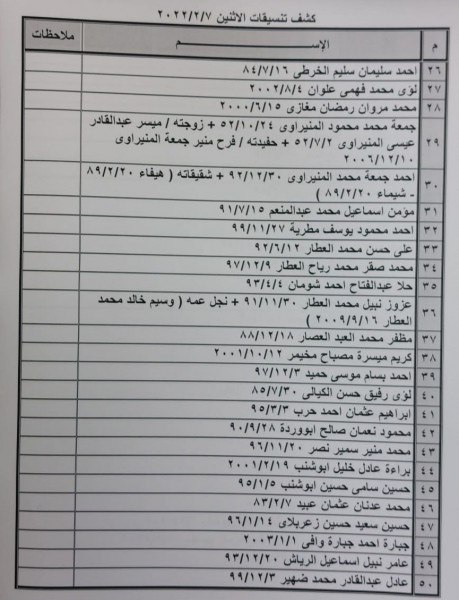 كشف تنسيقات الاثنين ٢٠٢٢/٢/٧
م الإســـــم ملاحظات
٢٦ احمد سليمان سليم الخرطى ٨٤/٧/١٦
٢٧ لؤى محمد فهمى علوان ٢٠٠٢/٨/٤
٢٨ محمد مروان رمضان مغازى ٢٠٠٠/٦/١٥
٢٩ جمعة محمد محمود المنيراوى ٥٢/١٠/٢٤ + زوجته / ميسر عبدالقادر
عيسى المنيراوى ٥٢/٧/٢ + حفيدته / فرح منير جمعة المنيراوى
٢٠٠٦/١٢/١٠
٣٠ احمد جمعة محمد المنيراوى ٩٢/١٢/٣٠ + شقيقاته ( هيفاء ٨٩/٢/٢٠
- شيماء ٨٩/٢/٢٠ )
٣١ مؤمن اسماعيل محمد عبدالمنعم ٩١/٧/١٥
٣٢ احمد محمود يوسف مطرية ٩٩/١١/٢٧
٣٣ على حسن محمد العطار ٩٢/٦/١٢
٣٤ محمد صقر محمد رياح العطار ٩٧/١٢/٩
٣٥ حلا عبدالفتاح احمد شومان ٩٣/٤/٤
٣٦ عزوز نبيل محمد العطار ٩١/١١/٣٠ + نجل عمه ( وسيم خالد محمد
العطار ٢٠٠٩/٩/١٦ )
٣٧ مظفر محمد العبد العصار ٨٨/١٢/١٨
٣٨ كريم ميسرة مصباح مخيمر ٢٠٠١/١٠/١٢
٣٩ احمد بسام موسى حميد ٩٧/١٢/٣
٤٠ لؤى رفيق حسن الكيالى ٨٥/٧/٣٠
٤١ ابراهيم عثمان احمد حرب ٩٥/٣/٣
٤٢ محمود نعمان صالح ابووردة ٩٠/٩/٢٨
٤٣ محمد منير سمير نصر ٩٦/١١/٢٠
٤٤ براءة عادل خليل ابوشنب ٢٠٠١/٢/١٩
٤٥ حسين سامى حسين ابوشنب ٩٥/١/٥
٤٦ محمد عدنان عثمان عبيد ٨٣/٢/٧
٤٧ حسين سعيد حسين زعربلاى ٩٦/١/١٤
٤٨ جبارة احمد جبارة وافى ٢٠٠٣/١/١
٤٩ عامر نبيل اسماعيل الرياش ٩٣/١٢/٢٠
٥٠ عادل عبدالقادر محمد ضهير ٩٩/١٢/٣